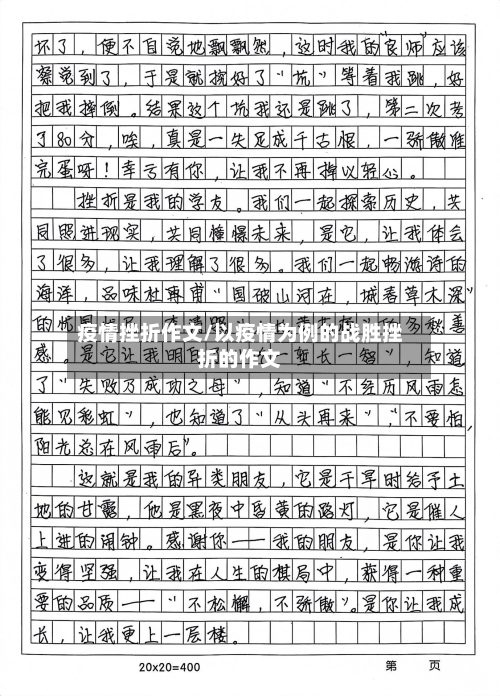 坏了，便不自觉地飘飘然，这时我的"良师"应该
察觉到了，于是就挖好了"坑"等着我跳，好
把我摔倒。结果这个坑我还是跳了，第二次考
了80分，唉，真是一失足成千古恨，一骄傲准
完蛋呀！幸亏有你，让我不再掉以轻心。
挫折是我的学友。我们一起探索历史，共
同照进现实，共同憧憬未来，是它，让我体会
了很多，让我理解了很多。我们一起畅游诗的
海洋，品味杜再甫"国破山河在，城春草木深"
的忧国
疫情挫折作文/以疫情为例的战胜挫
折的作文
多愁善
感。是它让我明白
一堑长一智"，知道
了"失败乃成功之母"，知道"不经历风雨怎
能见彩虹"，也知道了"从头再来"，"不要怕，
阳光总在风雨后"。
这就是我的异类朋友，它是干旱时给予土
地的甘露，他是黑夜中昏黄的路灯，它是催人
上进的闹钟。感谢你——我的朋友，是你让我
变得坚强，让我在人生的棋局中，获得一种重
要的品质——"不松懈，不骄傲"。是你让我成
长，让我更上一层楼。
20x20=400
第 页